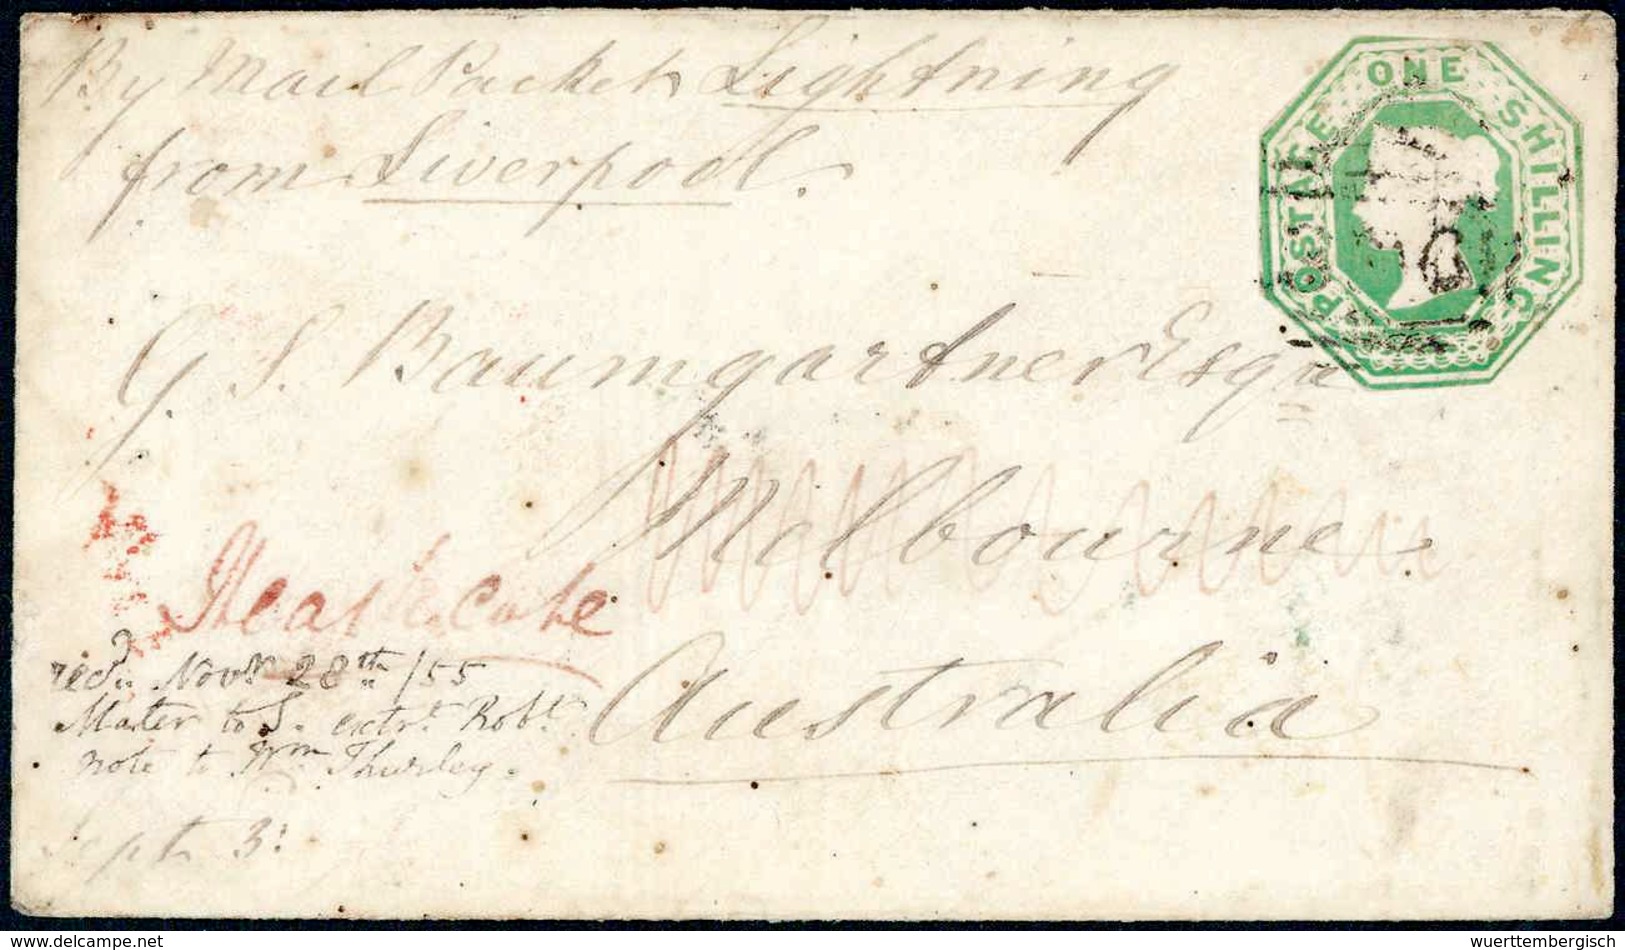 By Mail Packet Lightning
from Liverpool.
POSTAGE ONE SHILLING
G. S. Baumgartner Esqr
Melbourne
Heathcote
Australia
recd. Novr 28th /55
Mater to S. extrt. Robt.
note to Wm Thurley.
Sept 3:
© www.delcampe.net
wuerttembergisch